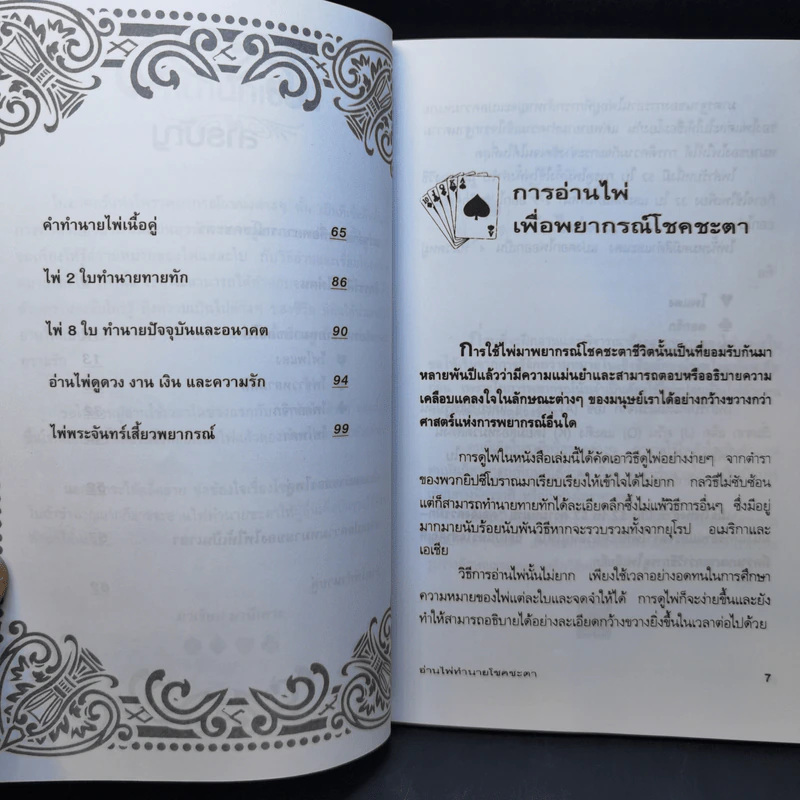 คำทำนายไพ่เนื้อคู่ 65
ไพ่ 2 ใบทำนายทายทัก 86
ไพ่ 8 ใบ ทำนายปัจจุบันและอนาคต 90
อ่านไพ่ดูดวง งาน เงิน และความรัก 94
ไพ่พระจันทร์เสี้ยวพยากรณ์ 99
การอ่านไพ่
เพื่อพยากรณ์โชคชะตา
การใช้ไพ่มาพยากรณ์โชคชะตาชีวิตนั้นเป็นที่ยอมรับกันมา
หลายพันปีแล้วว่ามีความแม่นยำและสามารถตอบหรืออธิบายความ
เคลือบแคลงใจในลักษณะต่างๆ ของมนุษย์เราได้อย่างกว้างขวางกว่า
ศาสตร์แห่งการพยากรณ์อื่นใด
การดูไพ่ในหนังสือเล่มนี้ได้คัดเอาวิธีดูไพ่อย่างง่ายๆ จากตำรา
ของพวกยิปซีโบราณมาเรียบเรียงให้เข้าใจได้ไม่ยาก กลวิธีไม่ซับซ้อน
แต่ก็สามารถทำนายทายทักได้ละเอียดลึกซึ้งไม่แพ้วิธีการอื่นๆ ซึ่งมีอยู่
มากมายนับร้อยนับพันวิธีหากจะรวบรวมทั้งจากยุโรป อเมริกาและ
เอเชีย
วิธีการอ่านไพ่นั้นไม่ยาก เพียงใช้เวลาอย่างอดทนในการศึกษา
ความหมายของไพ่แต่ละใบและจดจำให้ได้ การดูไพ่ก็จะง่ายขึ้นและยัง
ทำให้สามารถอธิบายได้อย่างละเอียดกว้างขวางยิ่งขึ้นในเวลาต่อไปด้วย
อ่านไพ่ทำนายโชคชะตา 7